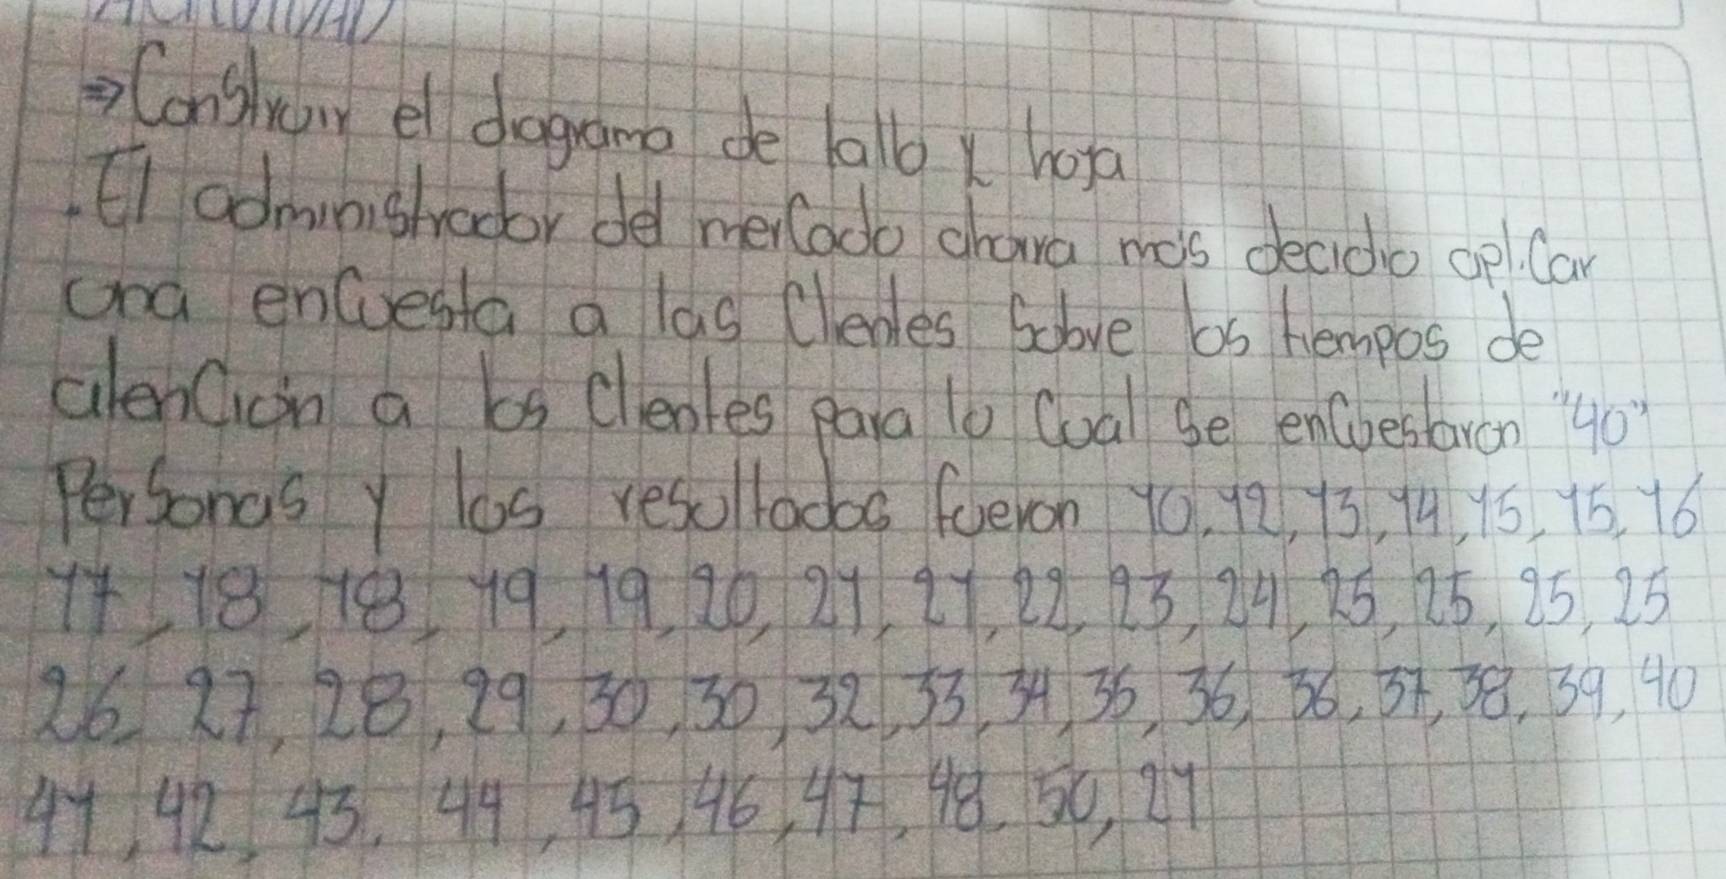 ACTIVIDAD
⇒ Construir el diagrama de tallo y hoja
. El administrador del mercado ahora más decidio aplicar
una encuesta a las Clientes Sobre los tiempos de
atención a los Clientes para lo Cual Se encuestaron "40"
Personas y los resultados fueron 10, 12, 13, 14, 15, 15, 16
17, 18, 18, 19, 19, 20, 21, 21, 22, 23, 24, 25, 25, 25, 25
26, 27, 28, 29, 30, 30, 32, 33, 34, 35, 36, 36, 37, 38, 39, 40
41, 42, 43, 44, 45, 46, 47, 48, 50, 21